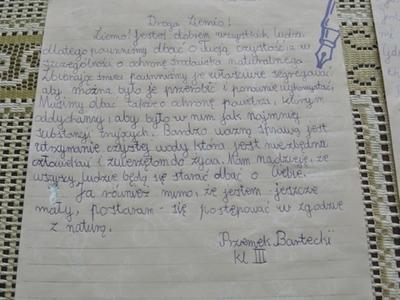 Droga Ziemio!
Ziemo! Jesteś dobrem wszystkich ludzi
dlatego powinniśmy dbać o Twoją czystość, a w
szczególności o ochronę środowiska naturalnego.
Zbierając śmieci powinniśmy je właściwie segregować
aby można było je przerobić i ponownie wykorzystać.
Musimy dbać także o ochronę powietrza, którym
oddychamy, aby było w nim jak najmniej
substancji trujących. Bardzo ważną sprawą jest
utrzymanie czystej wody która jest niezbędna
człowiekowi i zwierzętom do życia. Mam nadzieję, że
wszyscy ludzie będą się starać dbać o Ciebie.
Ja również mimo, że jestem jeszcze
mały, postaram się postępować w zgodzie
z naturą.
Przemek Bartecki
kl III